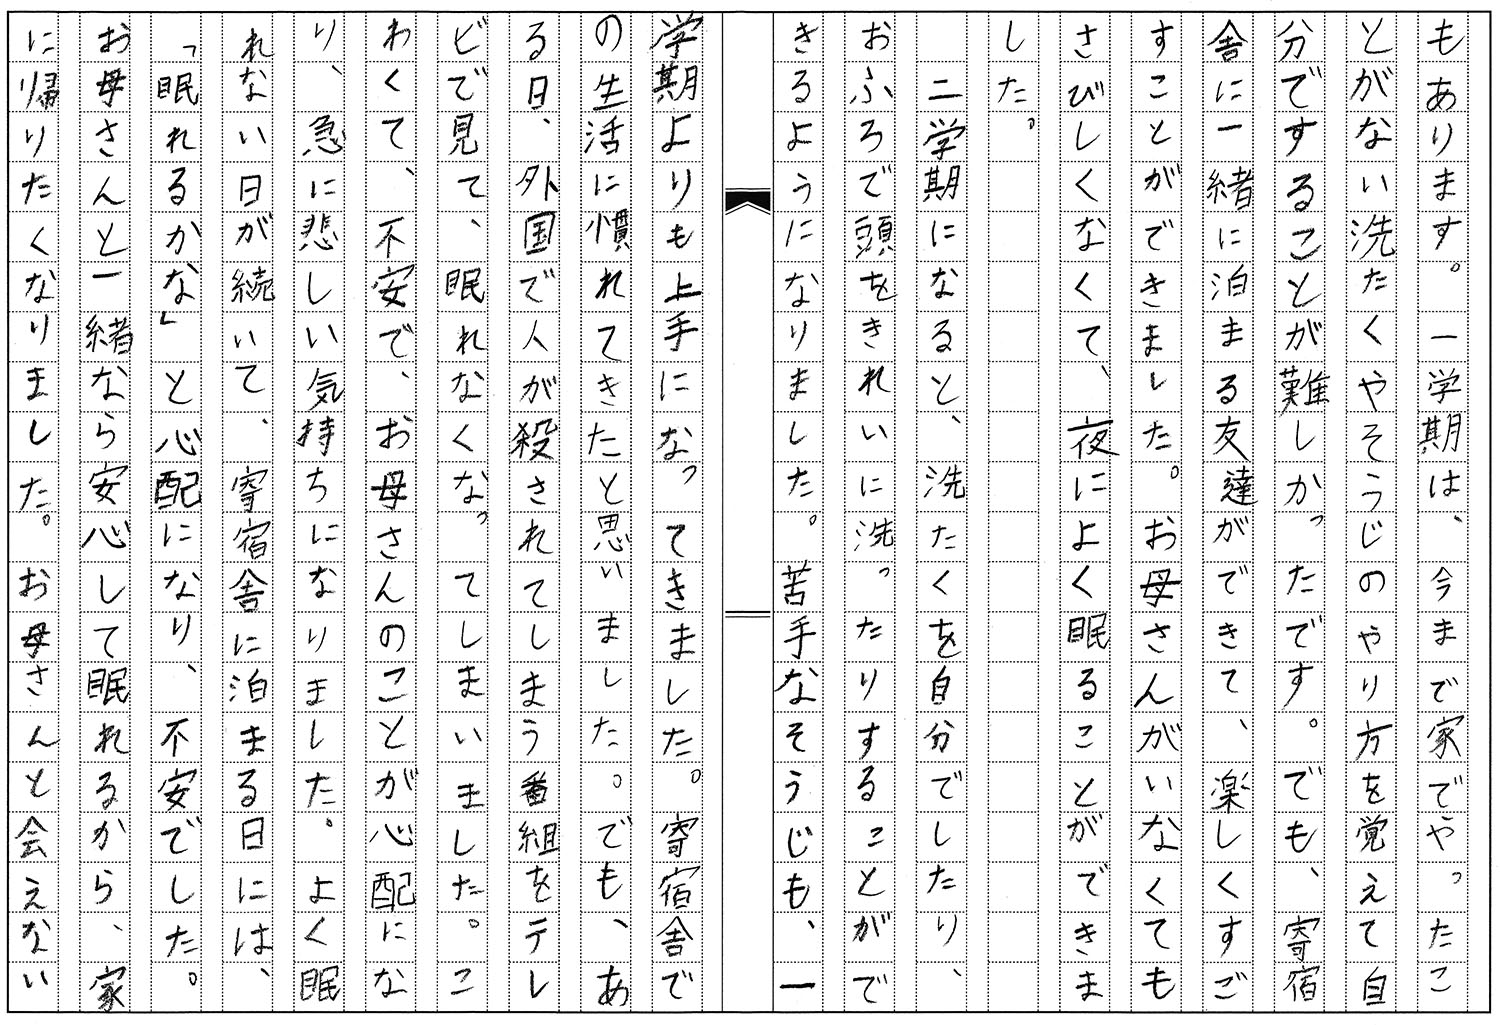 もあります。一学期は、今まで家でやったこ
とがない洗たくやそうじのやり方を覚えて自
分ですることが難しかったです。でも、寄宿
舎に一緒に泊まる友達ができて、楽しくすご
すことができました。お母さんがいなくても
さびしくなくて、夜によく眠ることができま
した。
二学期になると、洗たくを自分でしたり、
おふろで頭をきれいに洗ったりすることがで
きるようになりました。苦手なそうじも、一
学期よりも上手になってきました。寄宿舎で
の生活に慣れてきたと思いました。でも、あ
る日、外国で人が殺されてしまう番組をテレ
ビで見て、眠れなくなってしまいました。こ
わくて、不安で、お母さんのことが心配にな
り、急に悲しい気持ちになりました。よく眠
れない日が続いて、寄宿舎に泊まる日には、
「眠れるかな」と心配になり、不安でした。
お母さんと一緒なら安心して眠れるから、家
に帰りたくなりました。お母さんと会えない